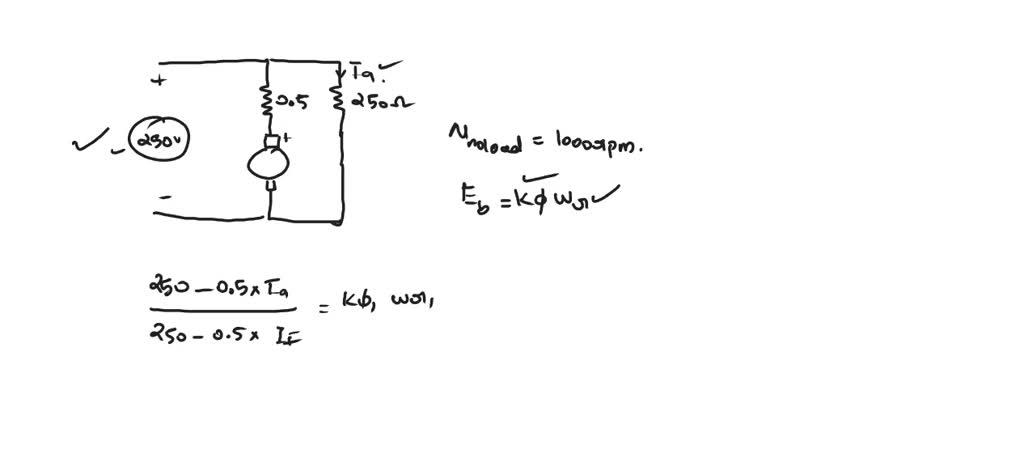 + Ia.
0.5 250Ω
+
250v
-
N noload = 1000rpm.
E_b = kϕ ωr
250 - 0.5 × Ia
250 - 0.5 × IF
= kϕ, ωr,